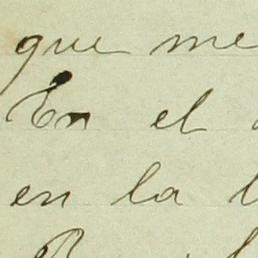 que me
En el
en la